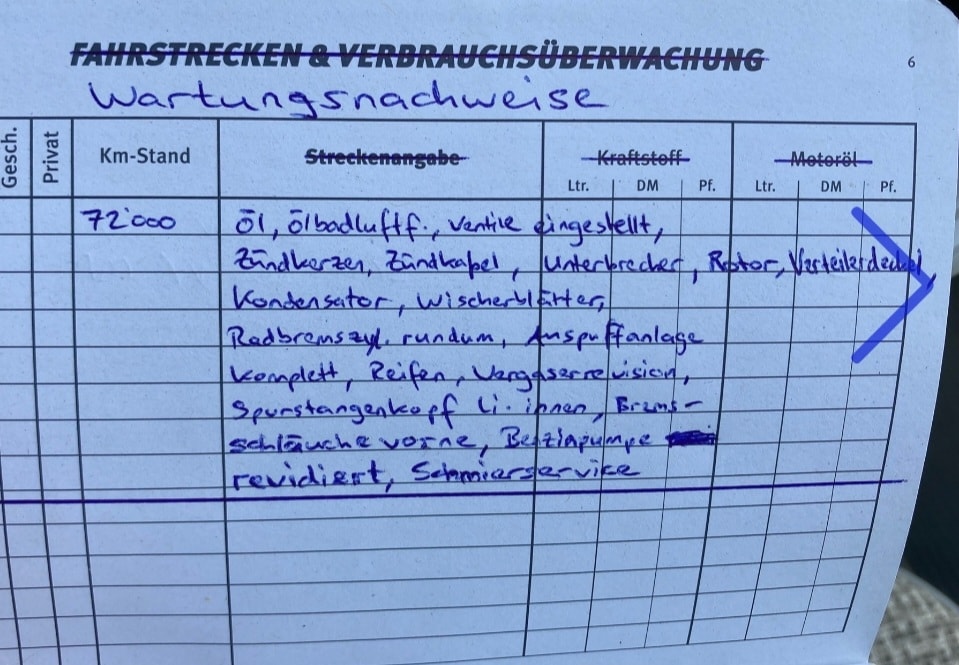 FAHRSTRECKEN & VERBRAUCHSÜBERWACHUNG
6
Wartungsnachweise
Gesch. Privat Km-Stand Streckenangabe Kraftstoff Motoröl
Ltr. DM Pf. Ltr. DM Pf.
72'000 Öl, Ölbadluftf., Ventile eingestellt,
Zündkerzen, Zündkabel, Unterbrecher, Rotor, Verteilerdeckel,
Kondensator, Wischerblätter,
Radbremszyl. rundum, Auspuffanlage
komplett, Reifen, Vergaserrevision,
Spurstangenkopf li. innen, Brems-
schläuche vorne, Benzinpumpe
revidiert, Schmierservice